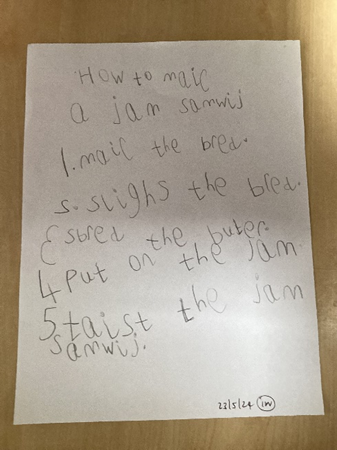 How to maic
a jam samwij
1. maic the bred.
2. slighs the bred.
3 sbred the buter.
4 Put on the jam
5 taist the jam
samwij.
23/5/24 IW